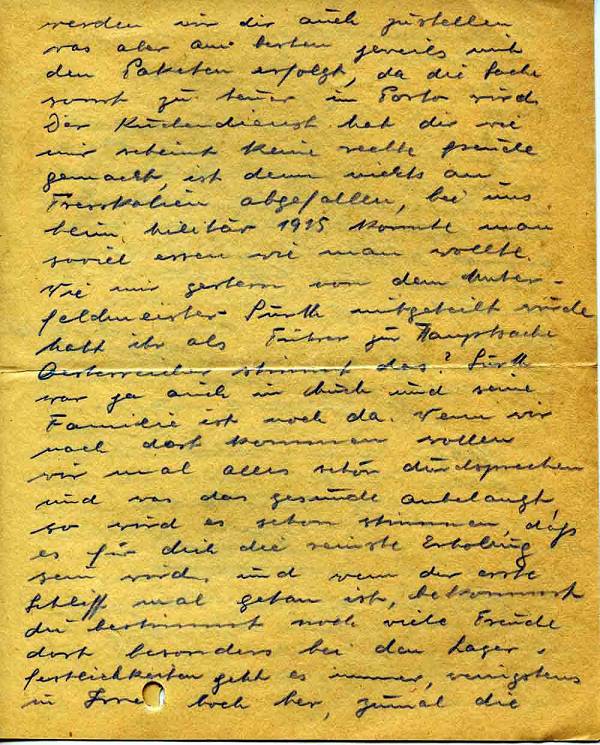 werden wir dir auch zustellen
was aber am besten jeweils mit
den Paketen erfolgt, da die Sache
sonst zu teuer in Porto wird.
Der Küchendienst hat dir wie
mir scheint keine rechte Freude
gemacht, ist denn nichts an
Fresskalien abgefallen, bei uns
beim Militär 1915 konnte man
soviel essen wie man wollte.
Wie mir gestern von dem Unter-
feldmeister mitgeteilt wurde
habt ihr als Führer zur Hauptsache
Oesterreicher stimmt das?
war ja auch in und seine
Familie ist noch da. Wenn wir
nach dort kommen wollen
wir mal alles schön durchsprechen
und was das gesunde anbelangt,
so wird es schon stimmen, daß
es für dich die reinste Erholung
sein wird, und wenn der erste
Schliff mal getan ist, bekommst
du bestimmt noch viele Freude
dort besonders bei den Lager-
festlichkeiten geht es immer, wenigstens
in hoch her, zumal die